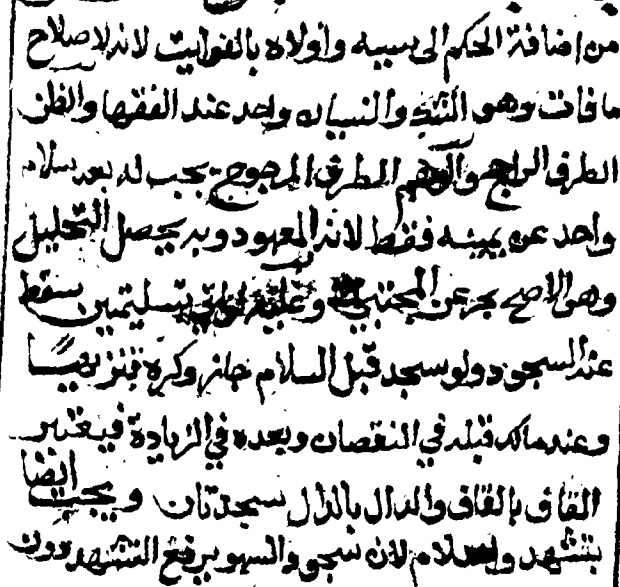 من اضافة الحكم الى سببه واولاه بالفوايت لانه لاصلاح
ما فات وهو والنسيان واحد عند الفقها والظن
الطرف الراجح والوهم الطرف المرجوح يجب له بعد سلام
واحد عن يمينه فقط لانه المعهود وبه يحصل التحليل
وهو الاصح بحر عن المجتبى وعليه لو اتى بتسليمتين سقط
عنه السجود ولو سجد قبل السلام جاز وكره تنزيها
وعند مالك قبله في النقصان وبعده في الزيادة فيعتبر
القاف بالقاف والدال بالدال سجدتان ويجب ايضا
بتشهد وسلام لان سجود السهو يرفع التشهد دون